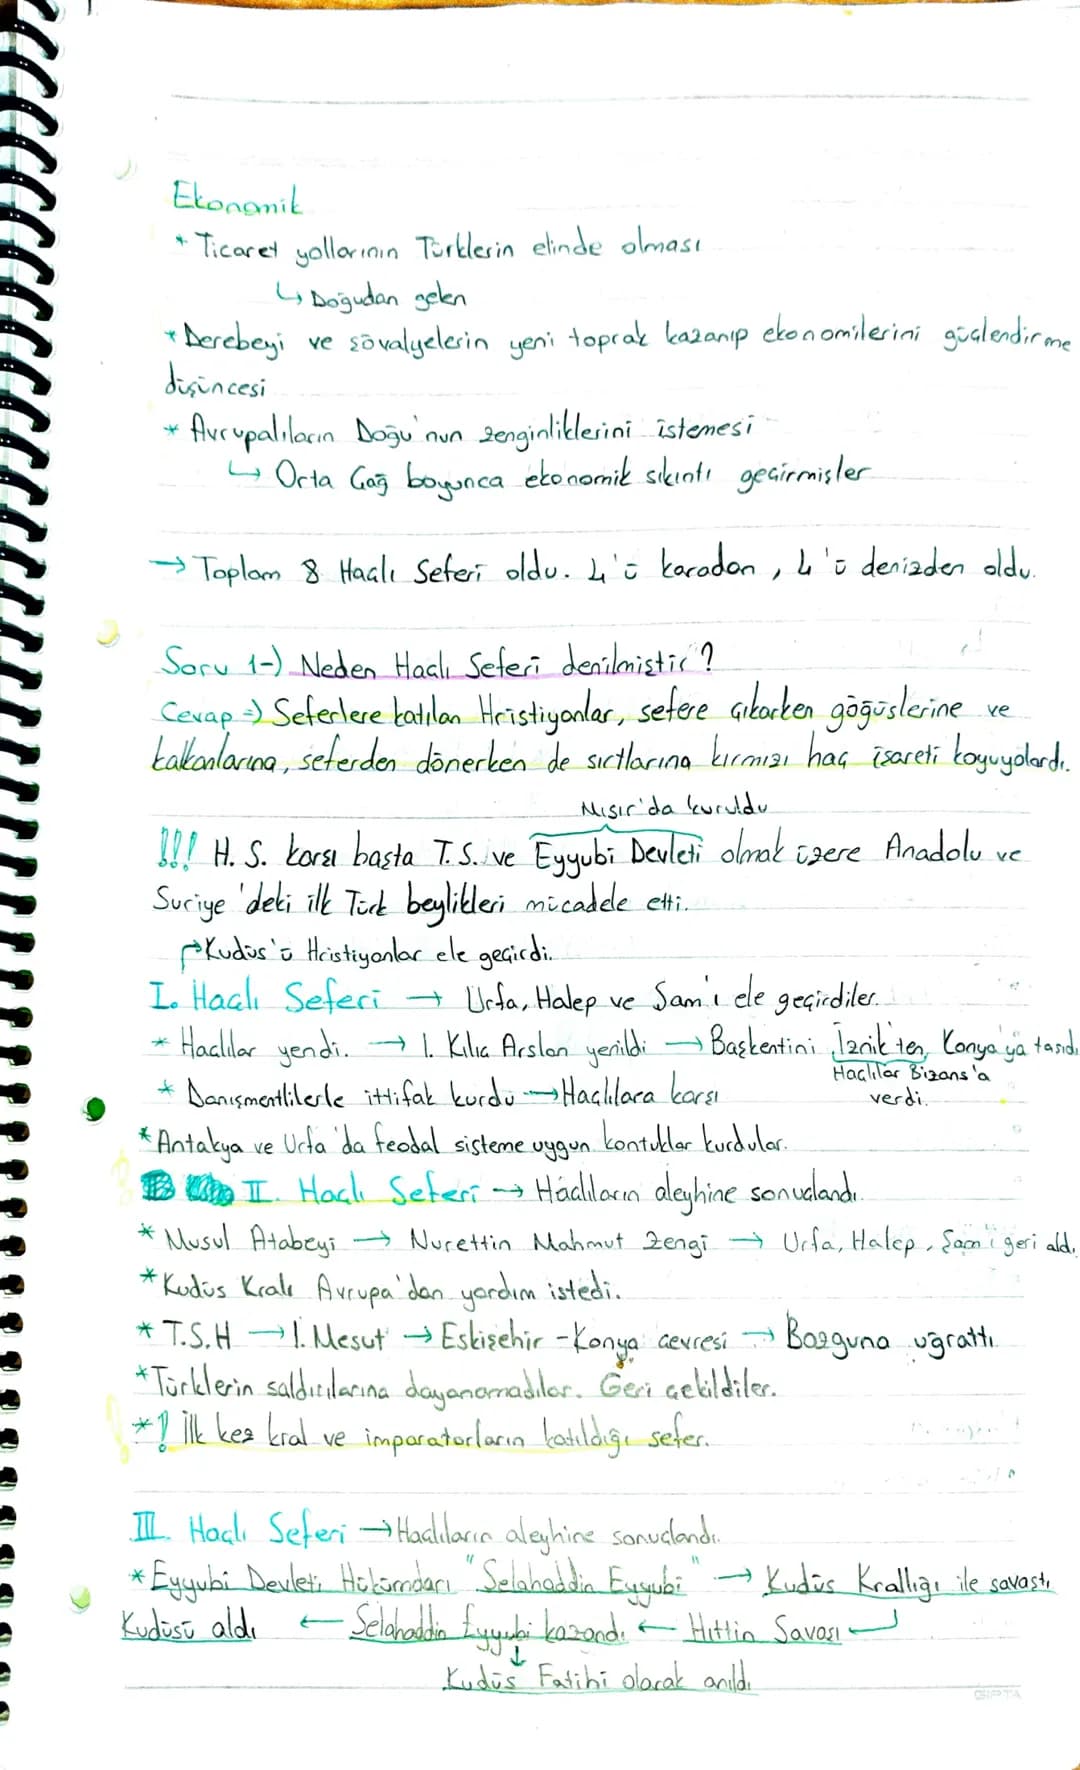 Ekonomik
* Ticaret yollarının Türklerin elinde olması
↳ Doğudan gelen
* Derebeyi ve şövalyelerin yeni toprak kazanıp ekonomilerini güçlendirme
düşüncesi
* Avrupalıların Doğu'nun zenginliklerini istemesi
↳ Orta Çağ boyunca ekonomik sıkıntı geçirmişler
→ Toplam 8 Haçlı Seferi oldu. 4'ü karadan, 4'ü denizden oldu.
Soru 1-) Neden Haçlı Seferi denilmiştir?
Cevap =) Seferlere katılan Hristiyanlar, sefere çıkarken göğüslerine ve
kalkanlarına, seferden dönerken de sırtlarına kırmızı haç işareti koyuyolardı.
Mısır'da kuruldu
!!! H. S. karşı başta T.S. ve Eyyubi Devleti olmak üzere Anadolu ve
Suriye'deki ilk Türk beylikleri mücadele etti.
↱Kudüs'ü Hristiyanlar ele geçirdi.
I. Haçlı Seferi → Urfa, Halep ve Şam'ı ele geçirdiler.
* Haçlılar yendi. → 1. Kılıç Arslan yenildi → Başkentini İznik'ten, Konya'ya taşıdı
Haçlılar Bizans'a
verdi.
* Danışmentlilerle ittifak kurdu → Haçlılara karşı
* Antakya ve Urfa'da feodal sisteme uygun kontuklar kurdular.
II. Haçlı Seferi → Haçlıların aleyhine sonuçlandı.
* Musul Atabeyi → Nurettin Mahmut Zengi → Urfa, Halep, Şam'ı geri aldı.
* Kudüs Kralı Avrupa'dan yardım istedi.
* T.S.H → 1. Mesut → Eskişehir - Konya çevresi → Bozguna uğrattı.
* Türklerin saldırılarına dayanamadılar. Geri çekildiler.
* ! İlk kez kral ve imparatorların katıldığı sefer.
III. Haçlı Seferi → Haçlıların aleyhine sonuçlandı.
* Eyyubi Devleti Hükümdarı "Selahaddin Eyyubi" → Kudüs Krallığı ile savaştı
Kudüsü aldı ← Selahaddin Eyyubi kazandı ← Hıttin Savaşı
↓
Kudüs Fatihi olarak anıldı
GIPTA